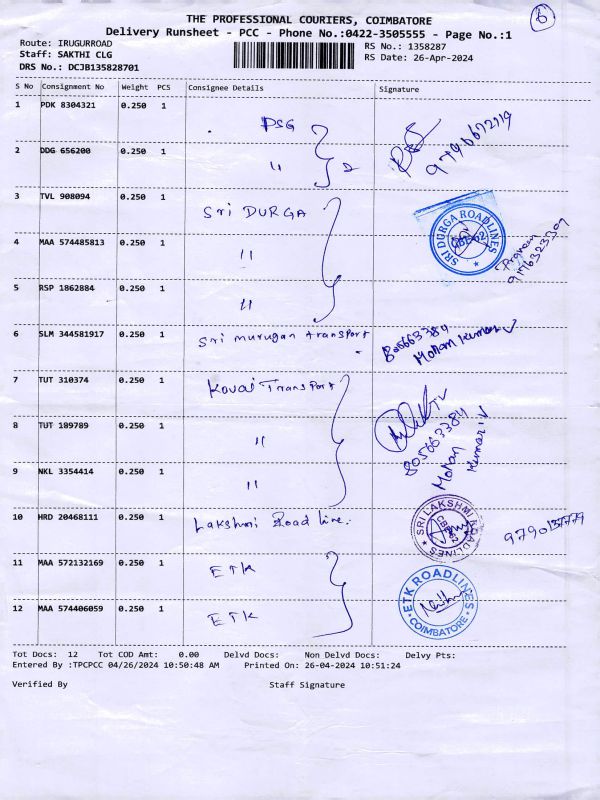 6
THE PROFESSIONAL COURIERS, COIMBATORE
Delivery Runsheet - PCC - Phone No.:0422-3505555 - Page No.:1
Route: IRUGURROAD
RS No.: 1358287
Staff: SAKTHI CLG
RS Date: 26-Apr-2024
DRS No.: DCJB135828701
S No Consignment No Weight PCS Consignee Details Signature
1 PDK 8304321 0.250 1 PSG
2 DDG 656200 0.250 1 " 2
3 TVL 908094 0.250 1 Sri DURGA
SRI DURGA ROADLINES
4 MAA 574485813 0.250 1 "
5 RSP 1862884 0.250 1 "
6 SLM 344581917 0.250 1 Sri murugan transport
8056633784
Mohan Kumar
7 TUT 310374 0.250 1 Kovai Transport
8 TUT 189789 0.250 1 "
8056633784
Mohan
Kumar
9 NKL 3354414 0.250 1 "
10 HRD 20468111 0.250 1 Lakshmi Road line.
SRI LAKSHMI ROADLINES
11 MAA 572132169 0.250 1 ETK
12 MAA 574406059 0.250 1 ETK
ETK ROADLINES
COIMBATORE
Tot Docs: 12 Tot COD Amt: 0.00 Delvd Docs: Non Delvd Docs: Delvy Pts:
Entered By :TPCPCC 04/26/2024 10:50:48 AM Printed On: 26-04-2024 10:51:24
Verified By Staff Signature